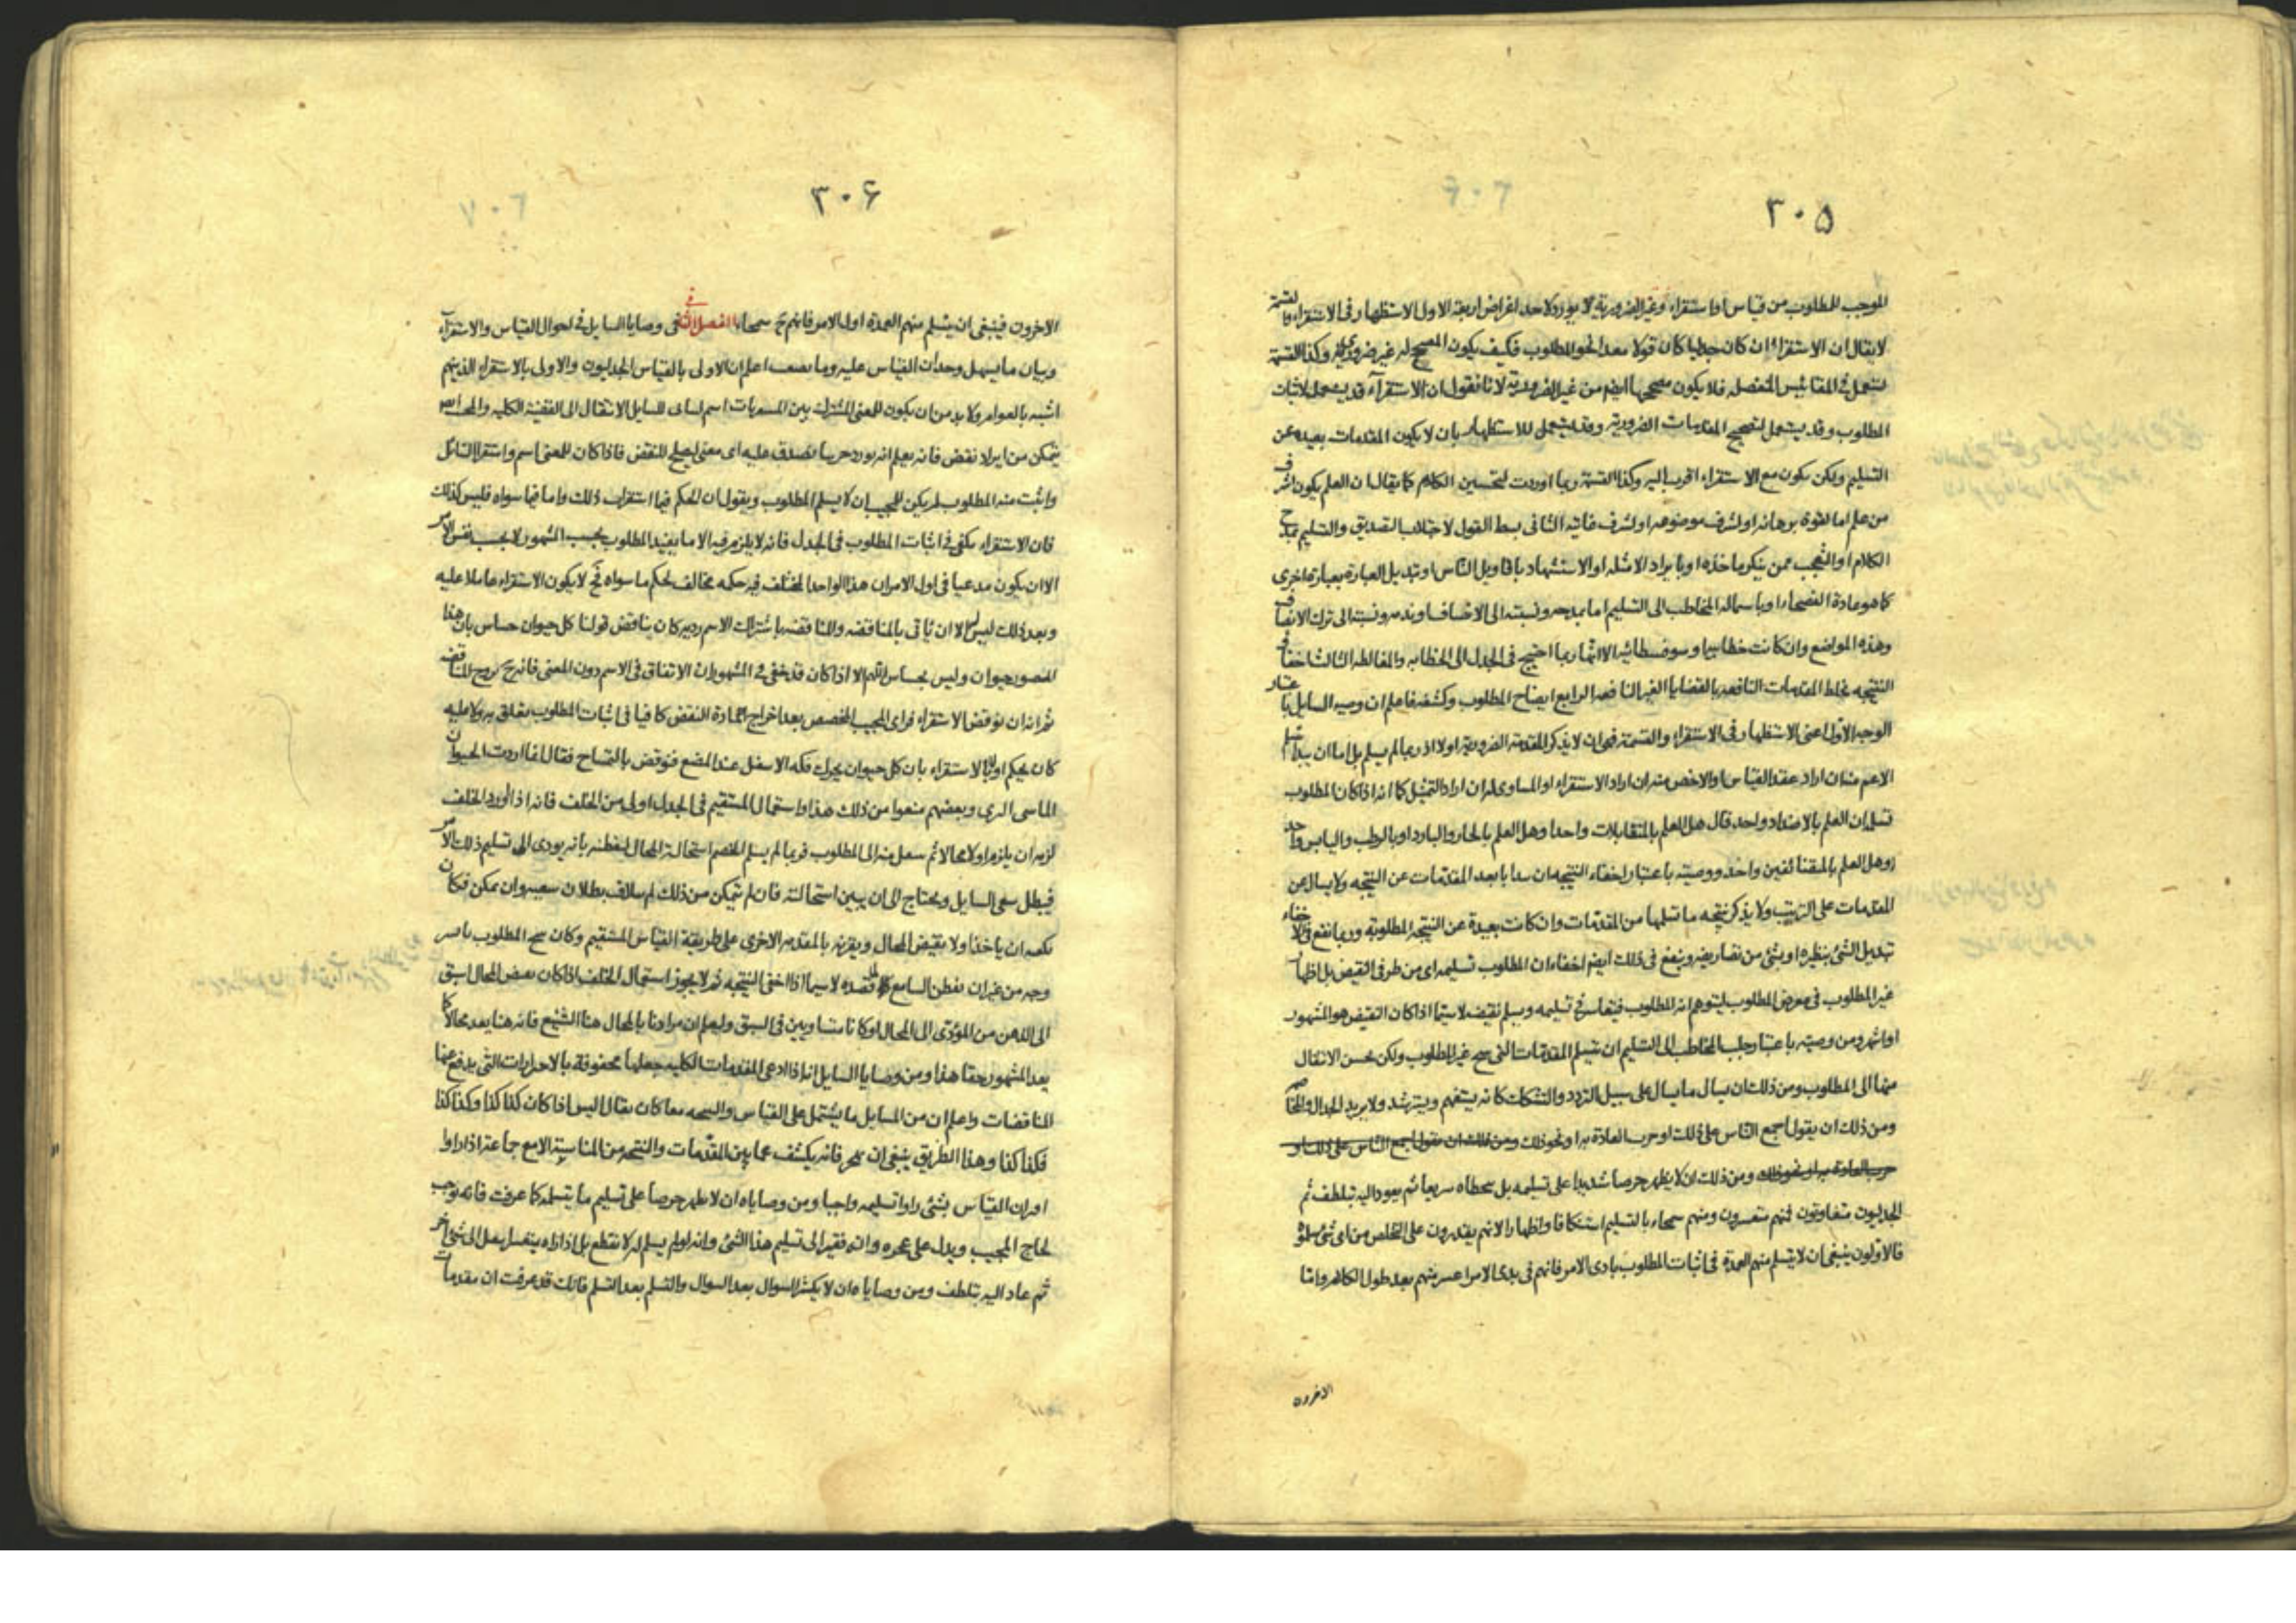 ٣٠۵
الموجب للمطلوب من قياس او استقراء وغير الضرورية لا يورد الا لاحد اغراض اربعة الاول الاستظهار فى الاستقراء والقسمة
لا يقال ان الاستقراء ان كان جدليا كان قولا معدا نحو المطلوب فكيف يكون المصحح له غير ضرورى وكذا القسمة
تستعمل فى المقائيس المنفصله فلا يكون مصححها ايضم من غير الضرورية لانا نقول ان الاستقرآء قد يستعمل لاثبات
المطلوب وقد يستعمل لتصحيح المقدمات الضرورية وقد يستعمل للاستظهار بان لا يكون المقدمات بعيده عن
التسليم ولكن يكون مع الاستقراء اقرب اليه وكذا القسمة ربما اوردت لتحسين الكلام كما يقال ان العلم يكون اشرف
من علم اما لقوة برهانه او لشرف موضوعه او لشرف غايته الثانى بسط القول لاجتلاب التصديق والتسليم بمدح
الكلام او التعجب ممن ينكر ماخذه او بايراد الامثله او الاستشهاد باقاويل الناس او تبديل العبارة بعبارة اخرى
كما هو عادة الفصحاء او باستماله المخاطب الى التسليم اما بمدحه ونسبته الى الانصاف او بذمه ونسبته الى ترك الانصاف
وهذه المواضع وان كانت خطابيه او سوفسطائيه الا انها ربما احتيج فى الجدل الى الخطابه والمغالطه الثالث اخفاء
النتيجه بخلط المقدمات النافعه بالقضايا الغير النافعه الرابع ايضاح المطلوب وكشفه فاعلم ان وصيه السايل باعتبار
الوجه الاول اعنى الاستظهار فى الاستقراء والقسمة فهى ان لا يذكر المقدمة الضرورية اولا اذ ربما لم يسلم بل اما ان يبدا بتسلم
الاعم منه ان اراد عقد القياس او الاخص منه ان اراد الاستقراء او المساوى له ان اراد التمثيل كما انه اذا كان المطلوب
تسلم ان العلم بالاضداد واحد قال هل العلم بالمتقابلات واحد او هل العلم بالحار والبارد او بالرطب واليابس واحد
او هل العلم بالمتضائفين واحد ووصيته باعتبار اخفاء النتيجه ان يبدا بابعد المقدمات عن النتيجه ولا يسال عن
المقدمات على الترتيب ولا يذكر نتيجه ما تسلمها من المقدمات وان كانت بعيدة عن النتيجه المطلوبة وربما نفع فى الاخفاء
تبديل الشئ بنظيره او بشئ من تصاريفه وينفع فى ذلك ايضم اخفاء ان المطلوب تسليمه اى من طرفى النقيض بل اظهار
غير المطلوب فى معرض المطلوب ليتوهم انه المطلوب فيتعاسر فى تسليمه ويسلم نقيضه لاسيما اذا كان النقيض هو المشهور
او اشهر ومن وصيته باعتبار جلب المخاطب الى التسليم ان يتسلم المقدمات التى هى غير المطلوب ولكن يحسن الانتقال
منها الى المطلوب ومن ذلك ان يسال ما يسال على سبيل التردد والتشكك كانه يستفهم ويسترشد ولا يريد الجدال والخصام
ومن ذلك ان يقول اجمع الناس على ذلك او جرت العادة به او نحو ذلك ومن ذلك ان يقول اجمع الناس على ذلك او
جرت العادة به او نحو ذلك ومن ذلك ان لا يظهر حرصا شديدا على تسليمه بل يتخطاه سريعا ثم يعود اليه بتلطف ثم
الجدليون متفاوتون فمنهم متعسرون ومنهم سمحاء بالتسليم استنكافا واظهارا لانهم يقدرون على التخلص من اى شئ سلموه
فالاولون ينبغى ان لا يتسلم منهم العمدة فى اثبات المطلوب بادى الامر فانهم فى بدى الامر اعسر منهم بعد طول الكلام واما
الاخرون
٣٠۶
الاخرون فينبغى ان يتسلم منهم العمدة اول الامر فانهم ح سمحاء الفصل الثانى فى وصايا السايل فى احوال القياس والاستقرآء
وبيان ما يسهل وجدان القياس عليه وما يصعب اعلم ان الاولى بالقياس الجدليون والاولى بالاستقراء الذين هم
اشبه بالعوام ولا بد من ان يكون للمعنى المشترك بين الجزئيات اسم ليتاتى للسايل الانتقال الى القضية الكليه والمجيب ايضم
يتمكن من ايراد نقض فانه يعلم انه يورد جزئيا يصدق عليه اى معنى ليصلح للنقض فاذا كان للمعنى اسم واستقرا السائل
واثبت منه المطلوب لم يكن للمجيب ان لا يسلم المطلوب ويقول ان الحكم فيما استقرات ذلك واما فيما سواه فليس كذلك
فان الاستقراء يكفى فى اثبات المطلوب فى الجدل فانه لا يلزم فيه الا ما يفيد المطلوب بحسب المشهور لا بحسب نفس الامر
الا ان يكون مدعيا فى اول الامر ان هذا الواحد المختلف فيه حكمه مخالف لحكم ما سواه فح لا يكون الاستقراء عاملا عليه
وبعد ذلك ليس له الا ان ياتى بالمناقضه والمناقضه باشتراك الاسم رديه كان يناقض قولنا كل حيوان حساس بان هذا
المصور حيوان وليس بحساس اللهم الا اذا كان قد خفى فى المشهور ان الاتفاق فى الاسم دون المعنى فانه ح يروج المناقضه
ثم انه ان نوقض الاستقراء فراى المجيب المخصص بعد اخراج مادة النقض كافيا فى اثبات المطلوب تعلق به ولا عليه
كان يحكم اولا بالاستقراء بان كل حيوان يحرك فكه الاسفل عند المضغ فنوقض بالتمساح فقال انما اردت الحيوان
الماشى البرى وبعضهم منعوا من ذلك هذا واستعمال المستقيم فى الجدل اولى من الخلف فانه اذا اورد الخلف
لزمه ان يلزم اولا محالا ثم ينتقل منه الى المطلوب فربما لم يسلم الخصم استحالة المحال لتفطنه بانه يودى الى تسليم ذلك الامر
فيبطل سعى السايل ويحتاج الى ان يبين استحالته فان لم يتمكن من ذلك لم يتلاف بطلان سعيه وان تمكن فكان
يمكنه ان ياخذ اولا نقيض المحال ويقرنه بالمقدمه الاخرى على طريقة القياس المستقيم وكان ينتج المطلوب باصر
وجه من غير ان يفطن السامع لقصده لاسيما اذا اخفى النتيجه ثم لا يجوز استعمال الخلف اذا كان نقيض المحال اسبق
الى الذهن من المؤدى الى المحال او كانا متساويين فى السبق وليعلم ان مرادنا بالمحال هنا الشنيع فانه هنا يعد محالا كما
يعد المشهور حقا هذا ومن وصايا السايل انه اذا ادعى المقدمات الكليه جعلها محفوفة بالاحترازات التى يدفع عنها
المناقضات واعلم ان من المسايل ما يشتمل على القياس والنتيجه معا كان يقال اليس اذا كان كذا كذا وكذا كذا
فكذا كذا وهذا الطريق ينبغى ان يهجر فانه يكشف عما بين المقدمات والنتيجه من المناسبة الا مع جماعة اذا راوا
اقتران القياس بشئ راوا تسليمه واجبا ومن وصاياه ان لا يظهر حرصا على تسليم ما يتسلمه كما عرفت فانه يوجب
لجاج المجيب ويدل على عجزه وانه فقير الى تسليم هذا الشئ وانه لو لم يسلم له لانقطع بل اذا راه يتعسر يعدل الى شئ آخر
ثم عاد اليه بتلطف ومن وصاياه ان لا يكثر السوال بعد السوال والتسلم بعد التسلم فانك قد عرفت ان مقدمات